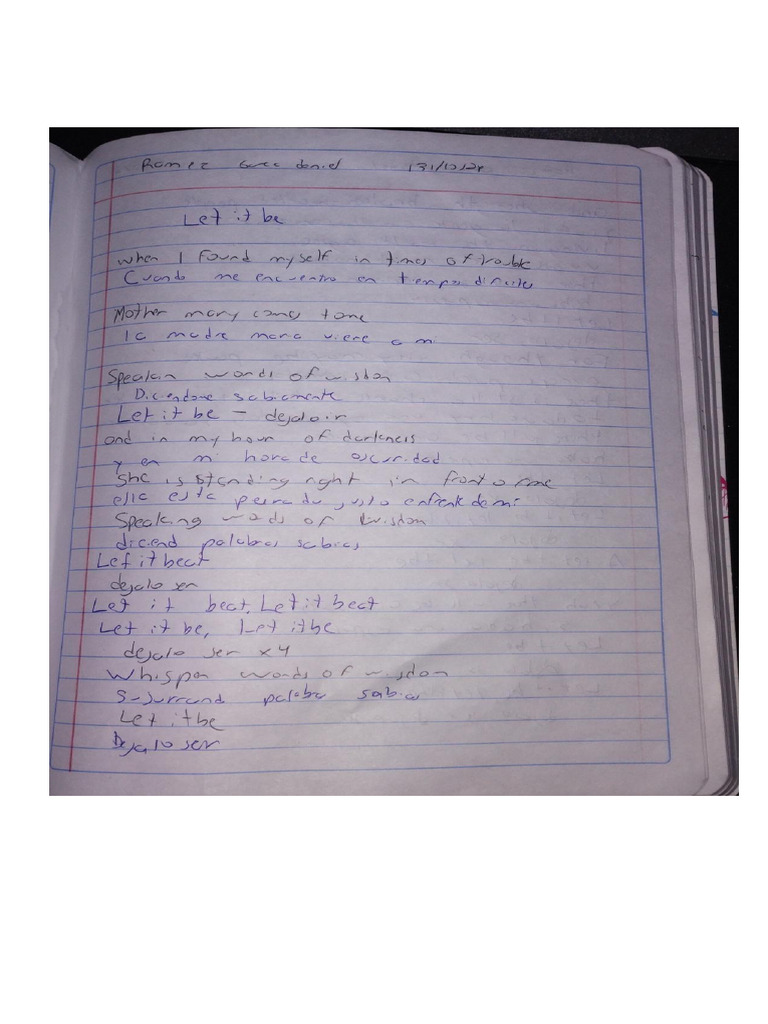 daniel
Let it be
when I found myself in times of trouble
Cuando me encuentro en tiempos dificiles
Mother mary comes tome
la madre maria viene a mi
Speakin words of wisdon
Diciendome sabiamente
Let it be - dejalo ir
and in my hour of darkness
y en mi hora de oscuridad
She is standing right in front o fme
ella esta parada justo enfrente de mi
Speaking words of wisdom
diciend palabras sabias
Let it beat
dejalo ser
Let it beat, Let it beat
Let it be, Let itbe
dejalo ser x4
Whisper words of wisdom
Susurrand palaba sabias
Let itbe
Dejalo ser